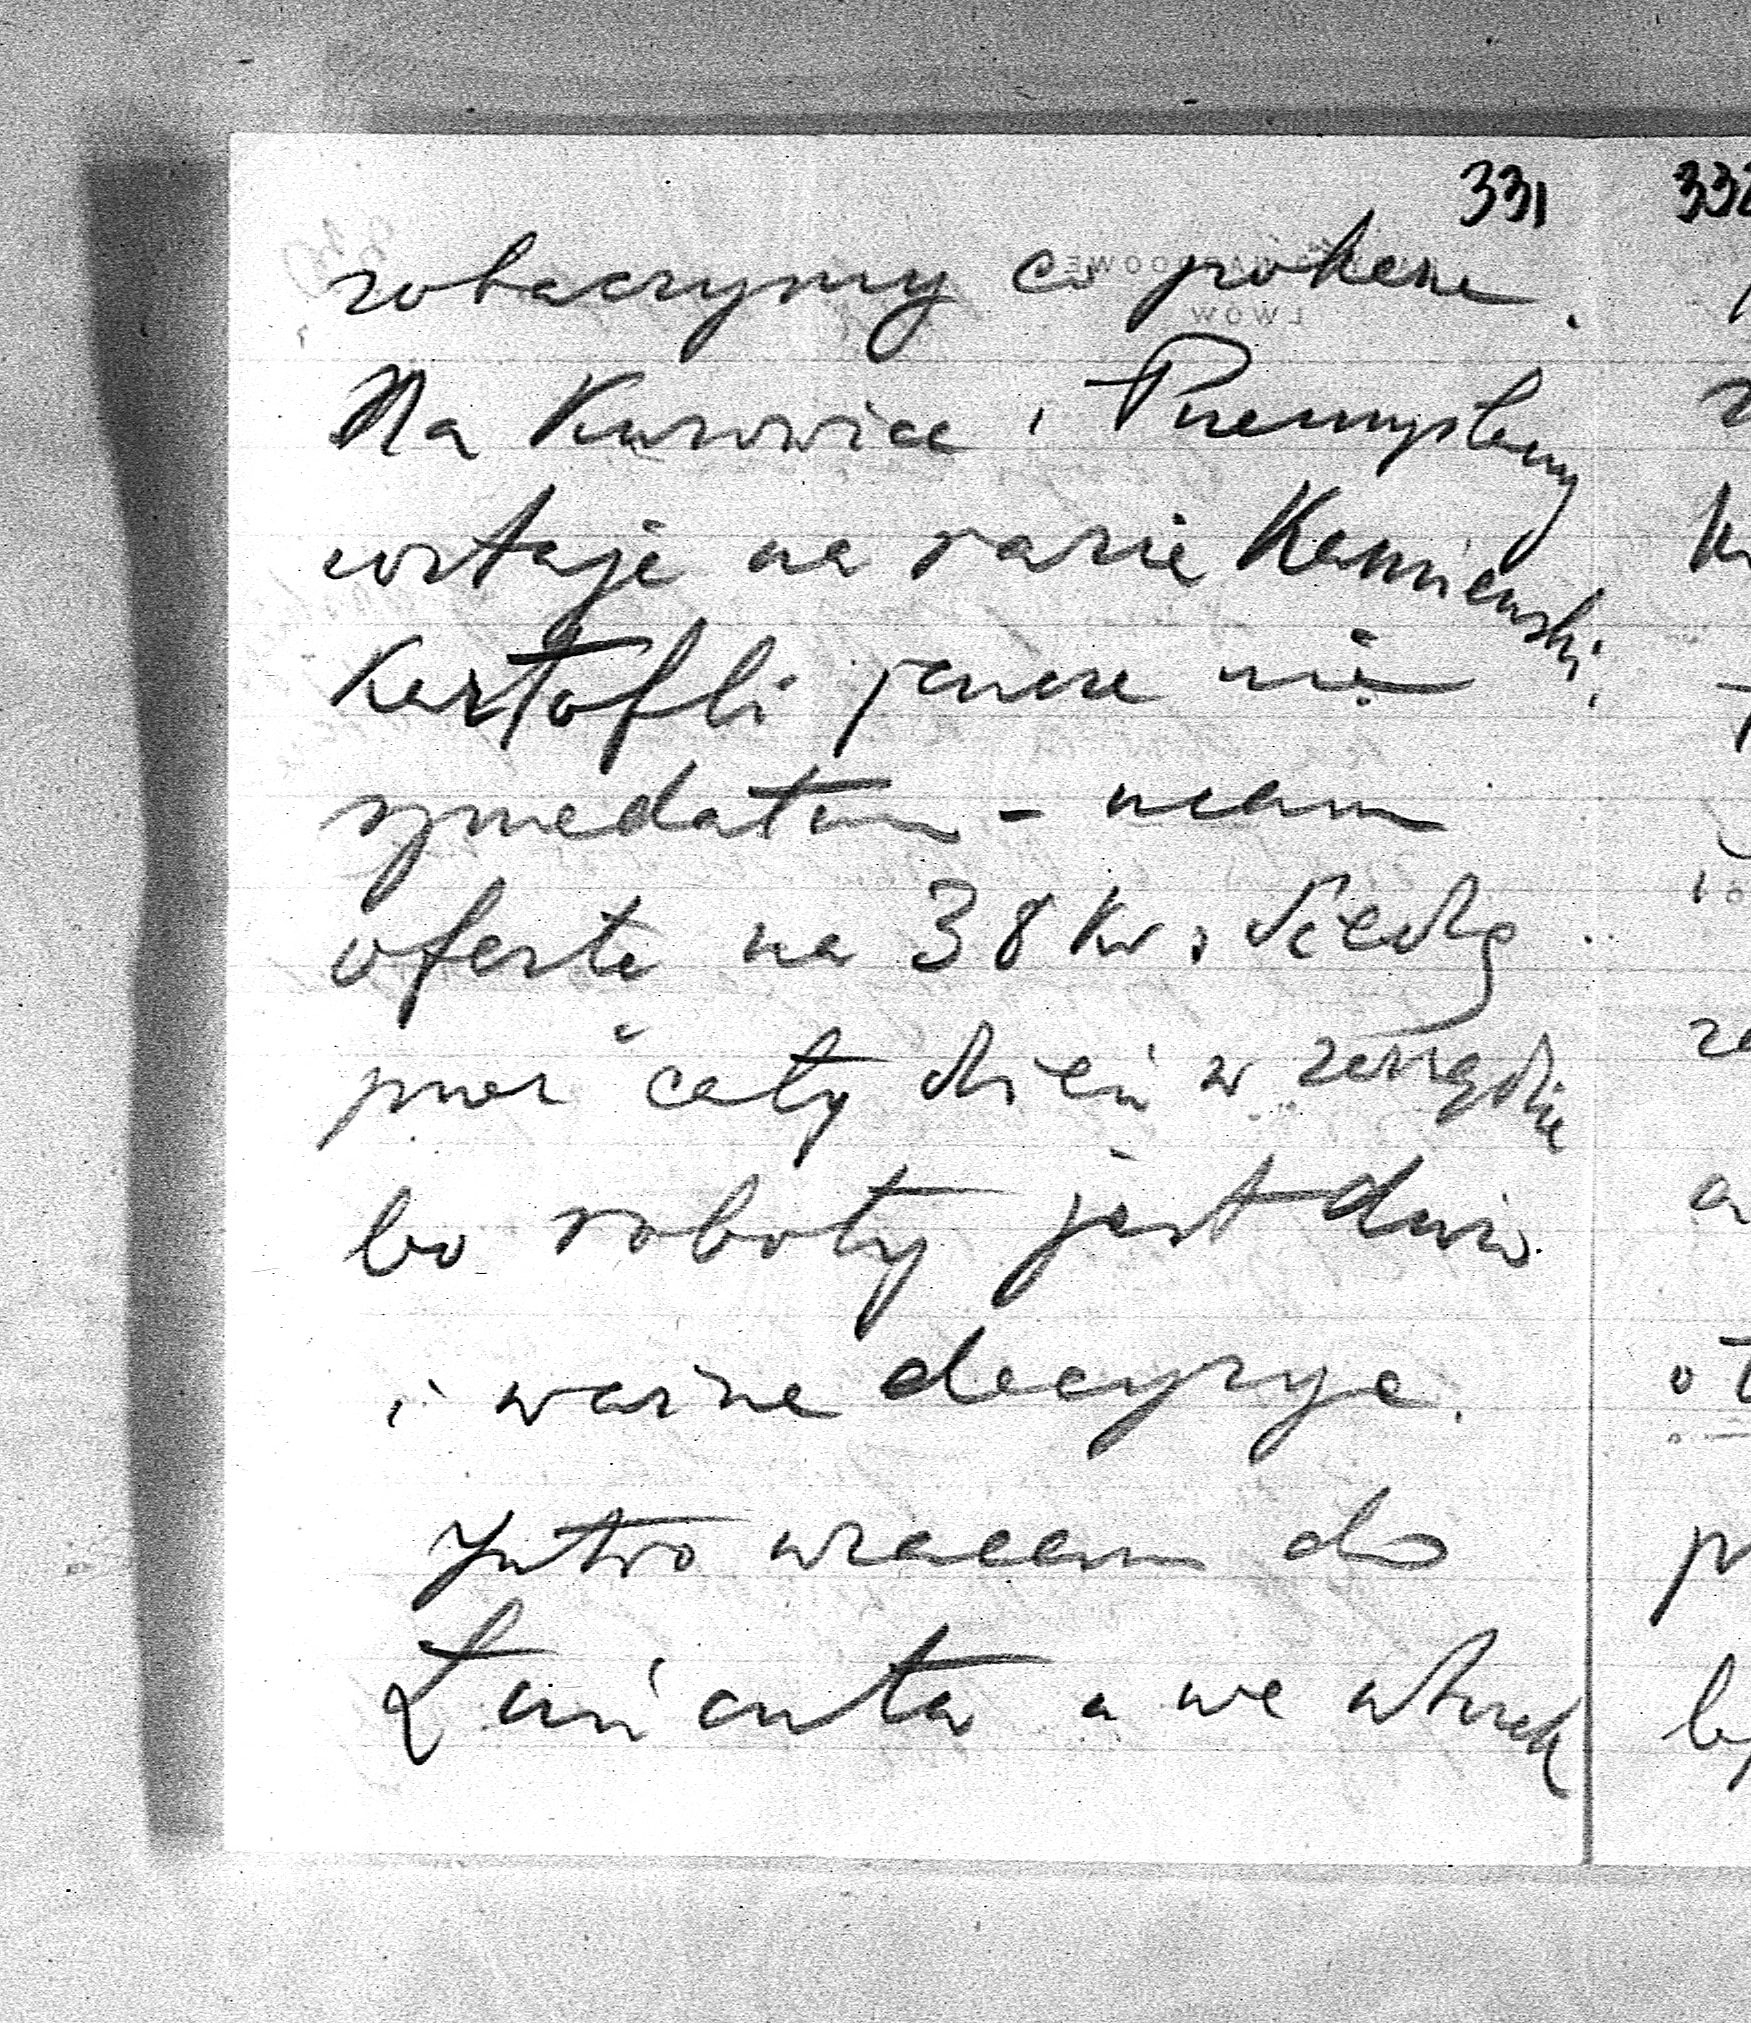 331
zobaczymy co pokaże.
Na Kurowice i Przemyślany
zostaje na razie Kamieński.
Kartofli jeszcze nie
sprzedałem - mam
ofertę na 38 kw. Siedzę
przez cały dzień w zarządzie
bo roboty jest dużo
i ważne decyzje.
Jutro wracam do
Łańcuta a we wtorek
332
LWOW